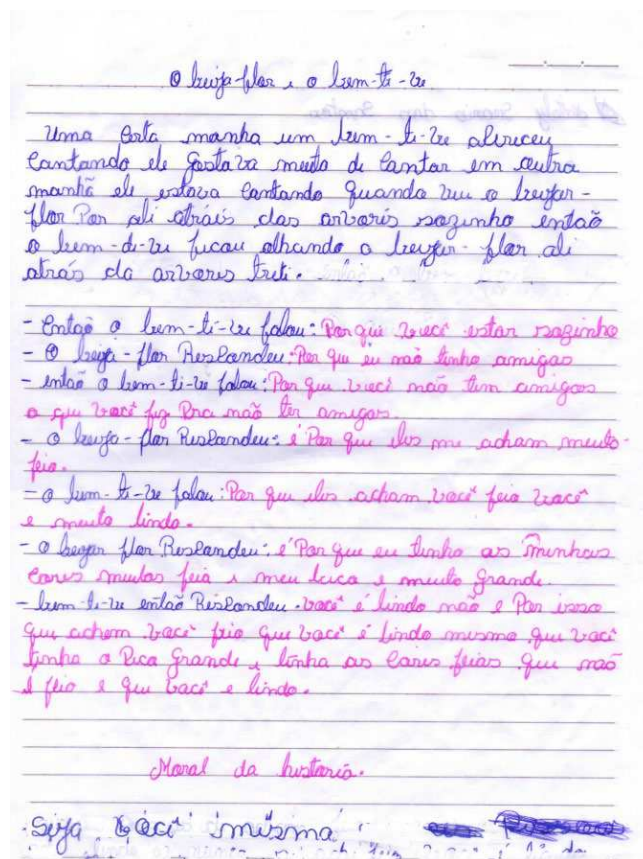 O beija-flor e o bem-ti-ve
Uma certa manha um bem-ti-ve
cantando ele gostava muito de cantar em outra
manhã ele estava cantando quando viu o beijar-
flor Por ali atráis das arvaris sozinho então
o bem-di-ve ficou olhando o beijar-flor ali
atrás da arvares triti.
- Então o bem-ti-ve falou: Porque você estar sozinho
- O beija-flor Respondeu: Por que eu não tinho amigos
- então o bem-ti-ve falou: Por que você não tem amigos
o que você fiz Pra não ter amigos.
- o beija-flor Respondeu: é Por que eles me acham muito
feio.
- o bem-ti-ve falou: Por que eles acham você feio você
e muito lindo.
- o beijar flor Respondeu: é Por que eu tinho as minhas
cores muitas feia e meu bica e muito grande.
- bem-ti-ve então Respondeu. você é lindo não e Por isso
que achem você feio que você é lindo mesmo que você
tinha o Bica grande e tinha as cores feias que não
é feio e que você e lindo.
Moral da histaria.
Seja você mesma